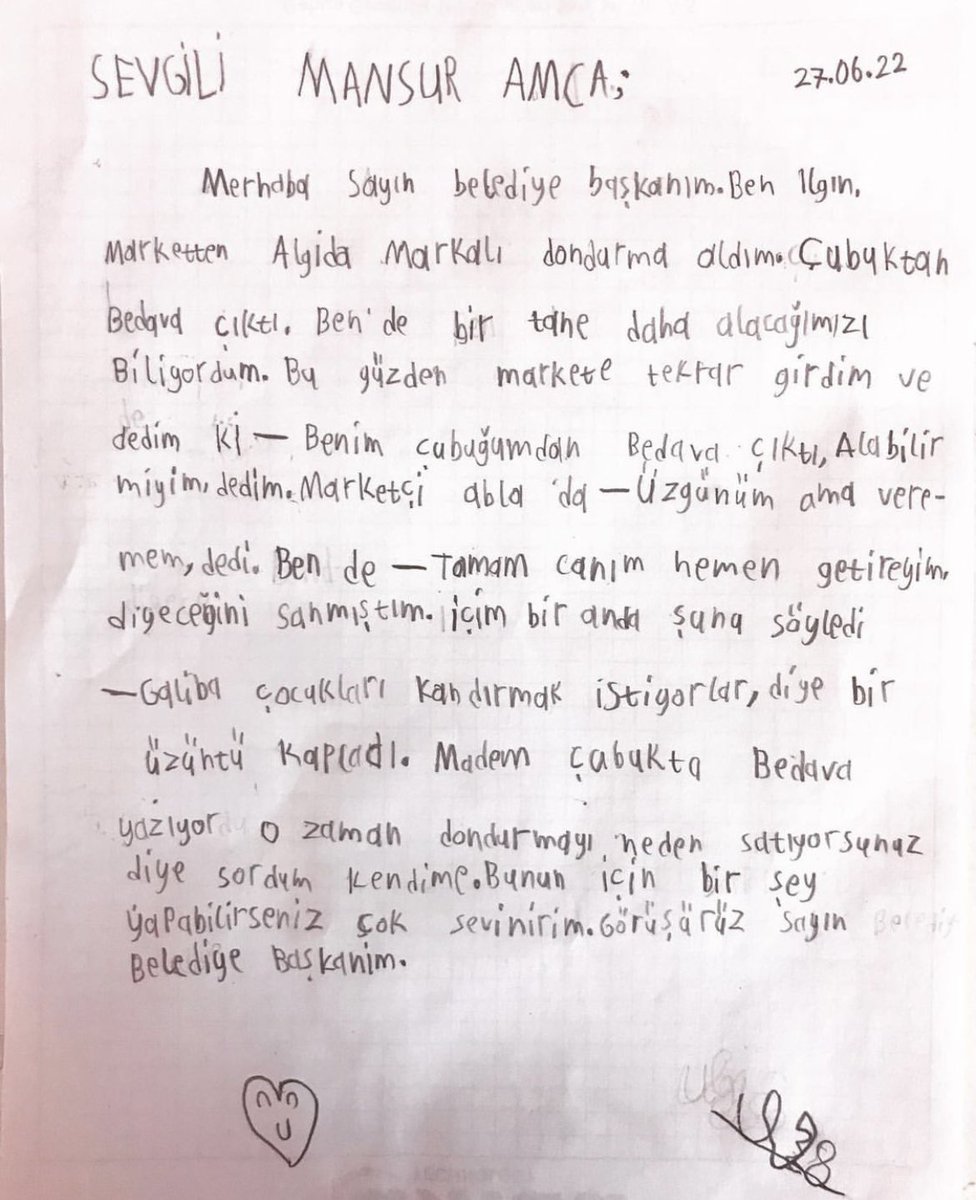 SEVGİLİ MANSUR AMCA; 27.06.22
Merhaba Sayın belediye başkanım. Ben Ilgın,
Marketten Algida Markalı dondurma aldım. Çubuktan
Bedava çıktı. Ben'de bir tane daha alacağımızı
Biliyordum. Bu yüzden markete tekrar girdim ve
dedim Ki — Benim çubuğumdan Bedava çıktı, Alabilir
miyim, dedim. Marketçi abla 'da — Üzgünüm ama vere-
mem, dedi. Ben de — Tamam canım hemen getireyim,
diyeceğini sanmıştım. içim bir anda şuna söyledi
— Galiba çocukları kandırmak istiyorlar, diye bir
üzüntü kapladı. Madem çubukta Bedava
yazıyor o zaman dondurmayı neden satıyorsunuz
diye sordum kendime. Bunun için bir şey
yapabilirseniz çok sevinirim. Görüşürüz sayın Beledi
Belediye Başkanim.